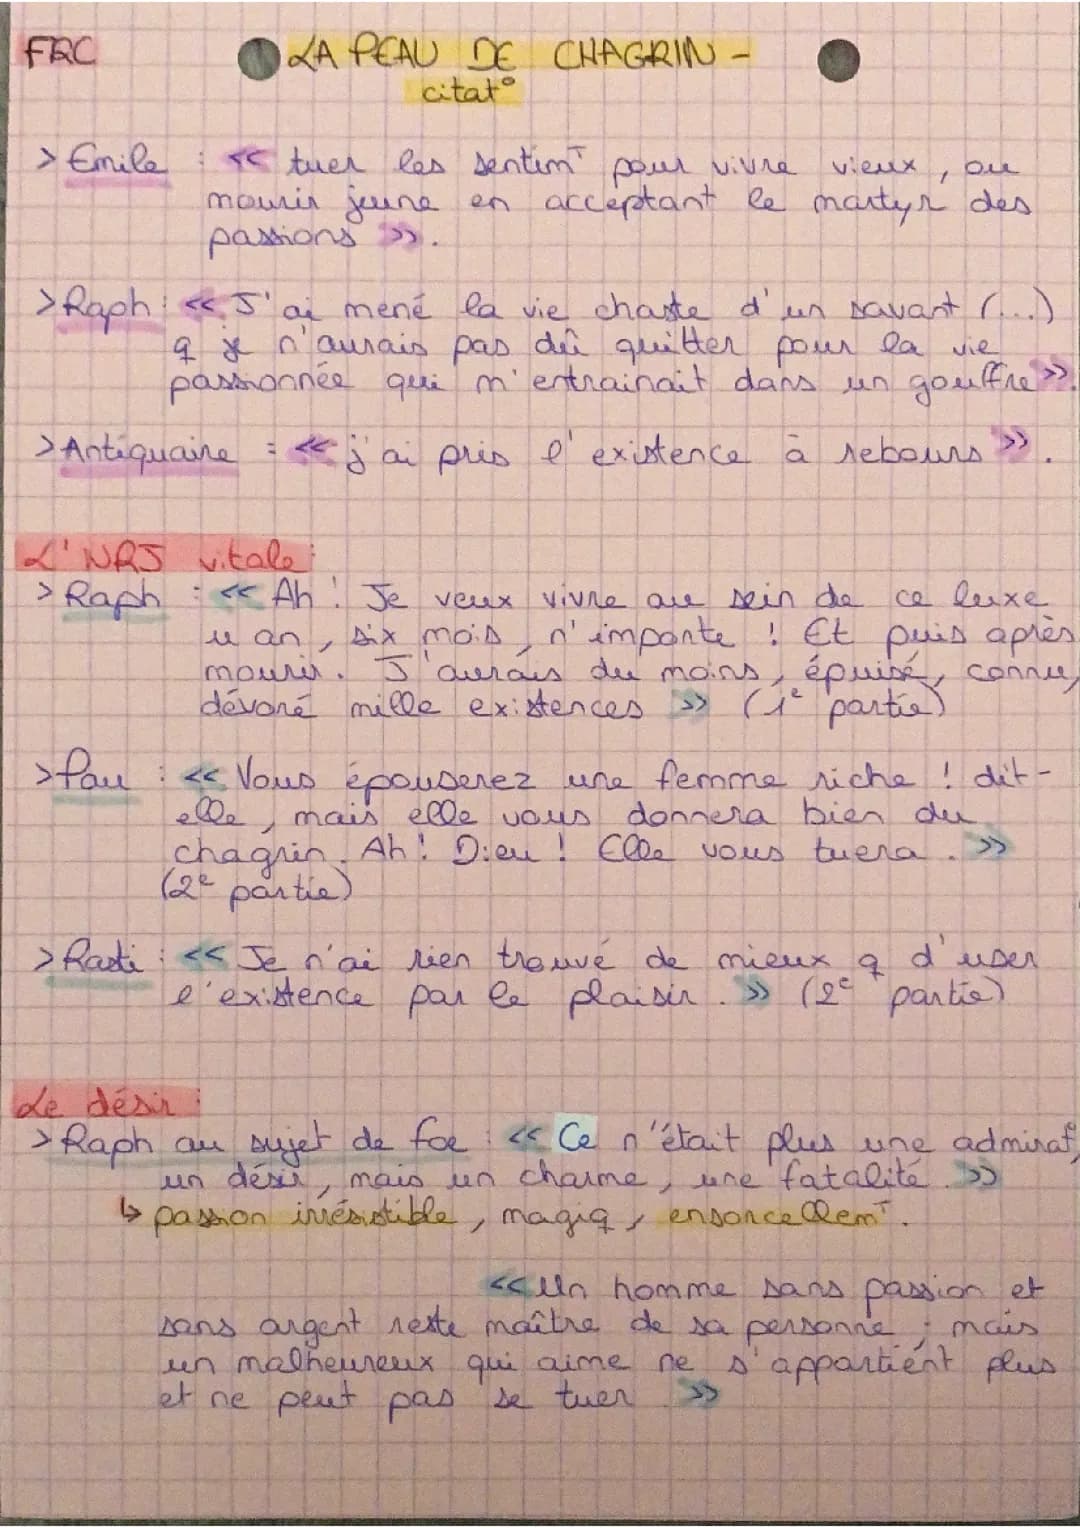 FRC
LA PEAU DE CHAGRIN -
citat°
> Emile : << tuer les sentimT pour vivre vieux, ou
mourir jeune en acceptant le martyr des
passions >>.
> Raph : << J'ai mené la vie chaste d'un savant (...)
q je n'aurais pas dû quitter pour la vie
passionnée qui m'entrainait dans un gouffre >>.
> Antiquaire : << j'ai pris l'existence à rebours >>.
L'NRJ vitale :
> Raph : << Ah ! Je veux vivre au sein de ce luxe
u an, six mois, n'importe ! Et puis après
mourir. J'aurais du moins, épuisé, connu,
dévoré mille existences >> (1e partie)
> Pau : << Vous épouserez une femme riche ! dit-
elle, mais elle vous donnera bien du
chagrin. Ah ! Dieu ! Elle vous tuera. >>
(2e partie)
> Rasti : << Je n'ai rien trouvé de mieux q d'user
l'existence par le plaisir. >> (2e partie)
Le désir :
> Raph au sujet de foe : << Ce n'était plus une admirat°,
un désir, mais un charme, une fatalité. >>
↳ passion irrésistible, magiq, ensorcellemT.
<< Un homme sans passion et
sans argent reste maître de sa personne ; mais
un malheureux qui aime ne s'appartient plus
et ne peut pas se tuer. >>